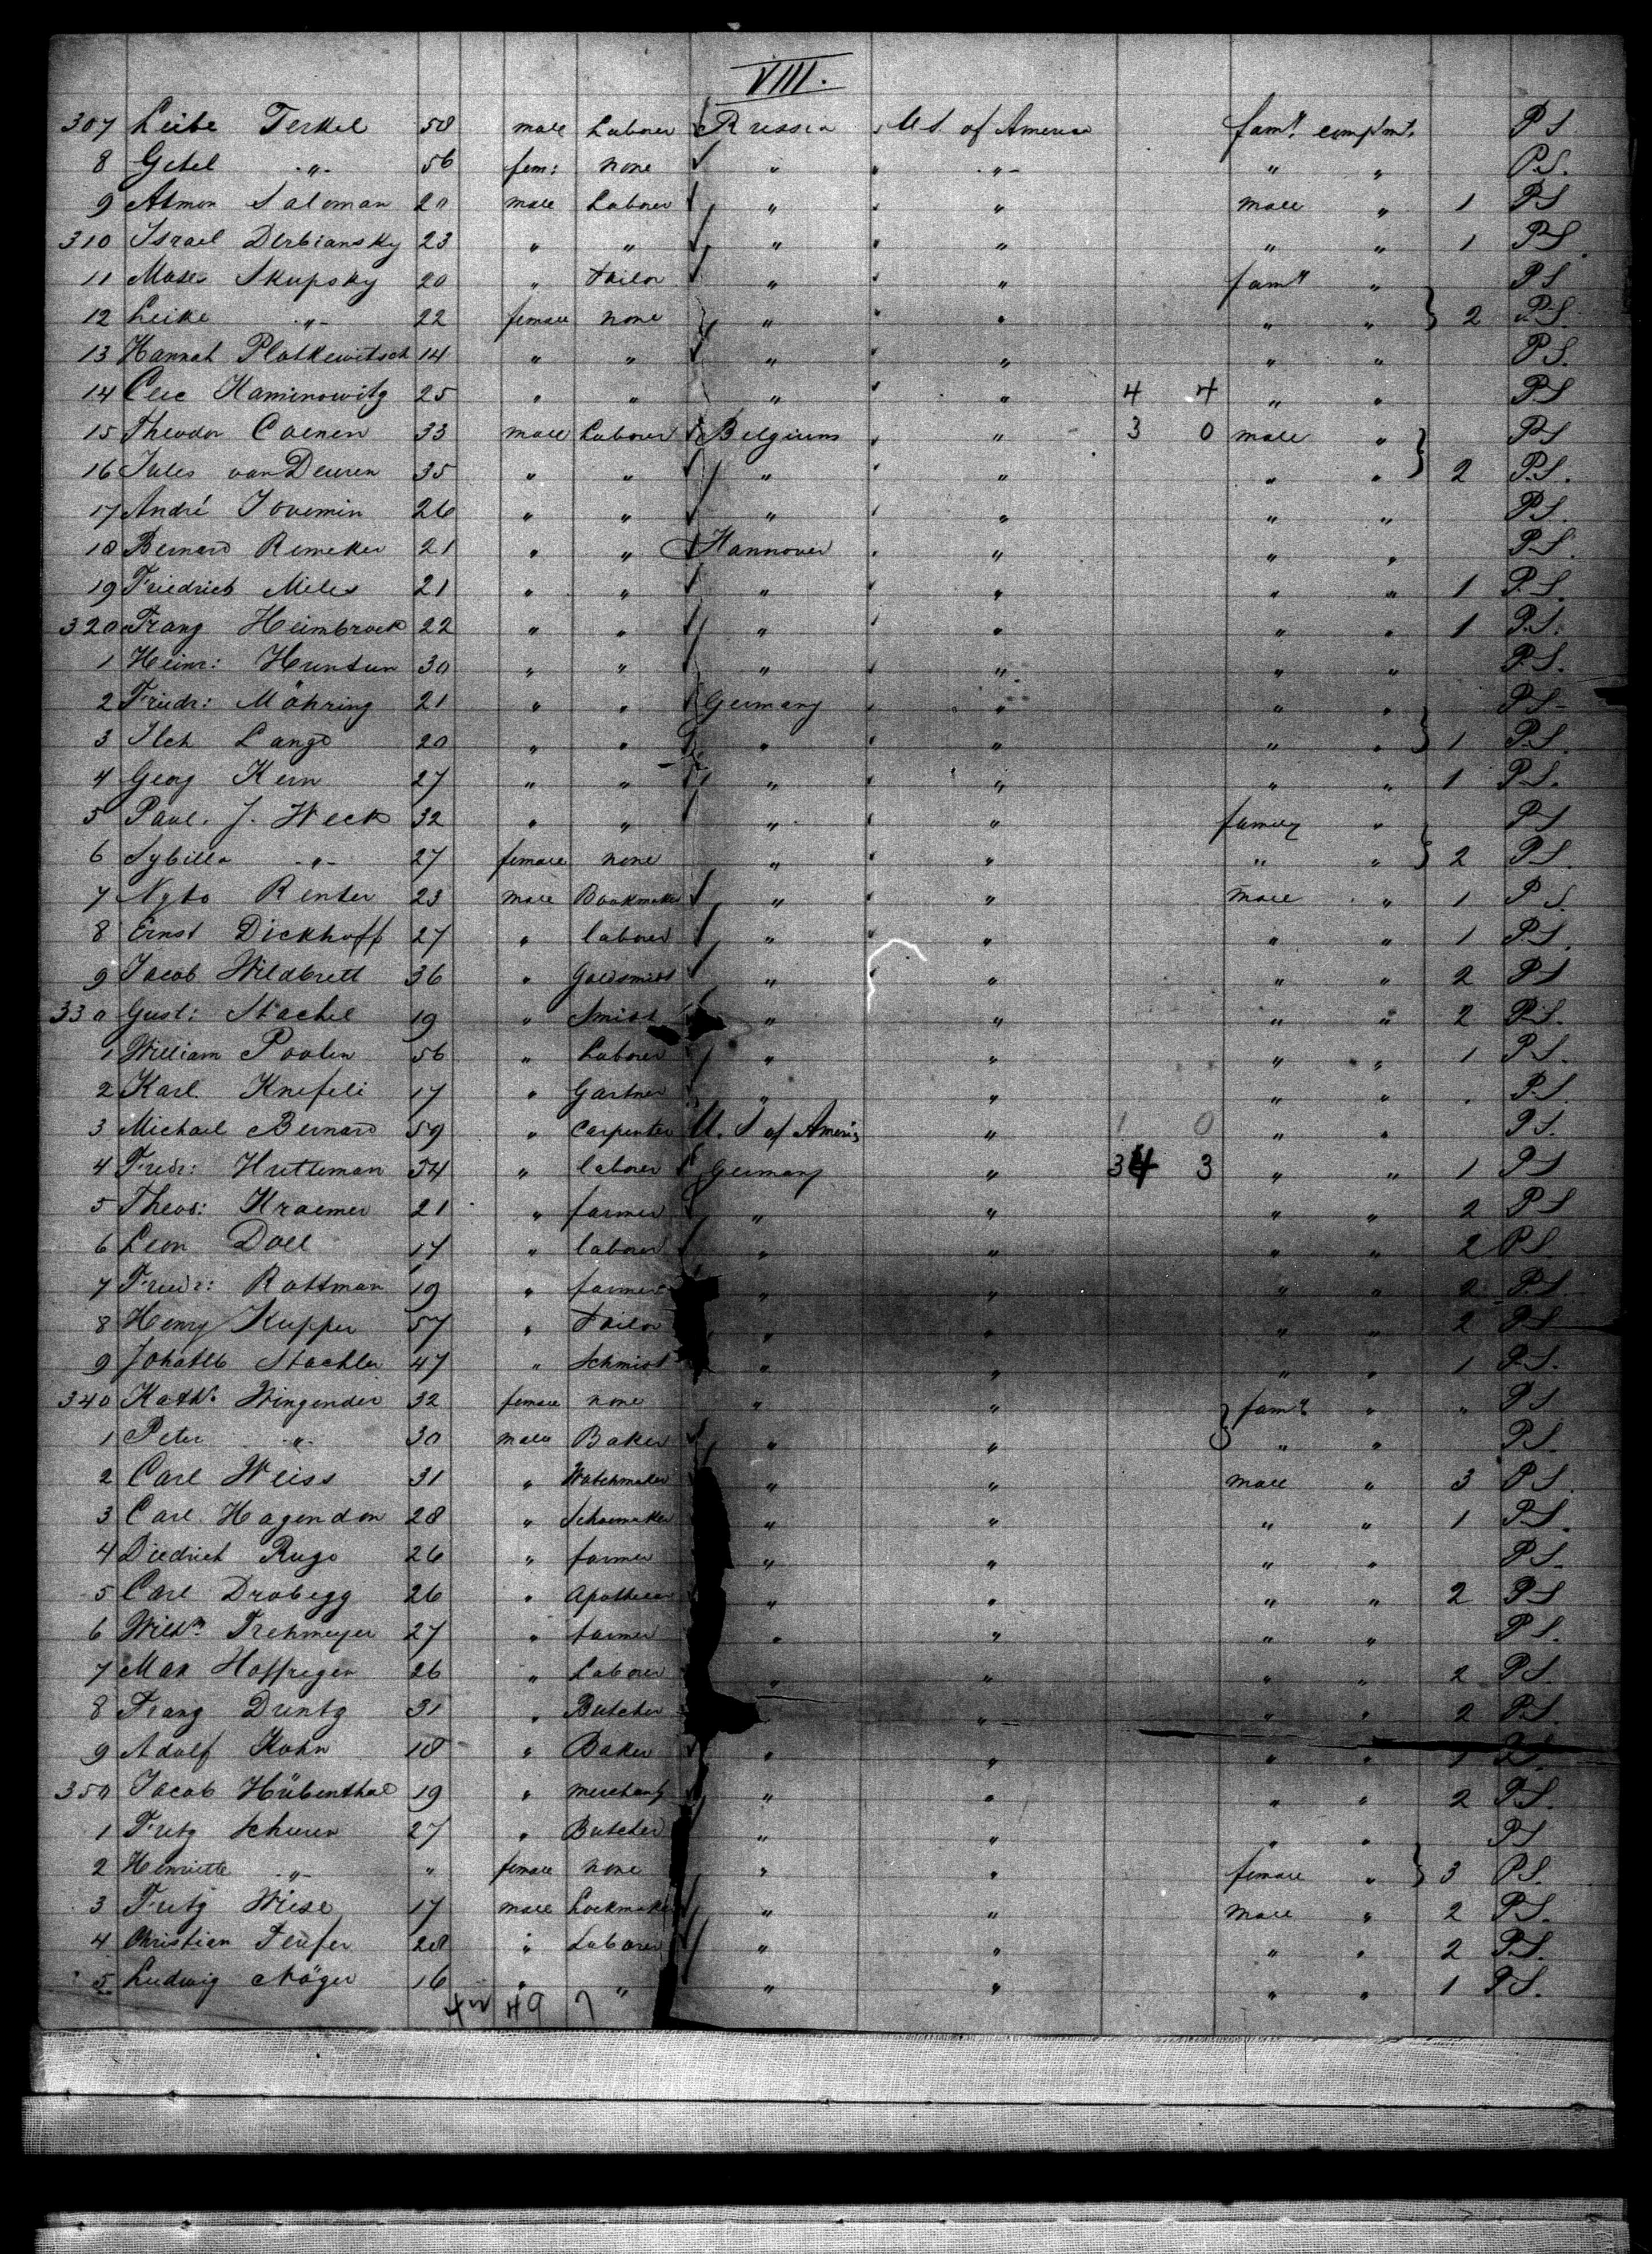 VIII.
307 Leibe Terkel 58 male Laborer Russia U.S. of America famy. compmt. P.S.
8 Getel " 56 fem: none " " " " P.S.
9 Salomon 20 male Laborer " " male " 1 P.S.
310 Israel Derbiansky 23 " " " " " " 1 P.S.
11 Moses Skupsky 20 " Tailor " " famy " P.S.
12 Leike " 22 female none " " " " } 2 P.S.
13 Hannah Plotkewitsch 14 " " " " " " P.S.
14 Kaminowitz 25 " " " " 4 4 " " P.S.
15 Theodor Coenen 33 male Laborer Belgium " 3 0 male " P.S.
16 Jules van Deuren 35 " " " " " " } 2 P.S.
17 André Jovemin 26 " " " " " " P.S.
18 Bernard Remeker 21 " " Hannover " " " P.S.
19 Friedrich Miles 21 " " " " " " 1 P.S.
320 Franz Heimbrock 22 " " " " " " 1 P.S.
1 Heinr: 30 " " " " " " P.S.
2 Friedr: Möhring 21 " " Germany " " " P.S.
3 Lange 20 " " " " " " } 1 P.S.
4 Georg Kern 27 " " " " " " 1 P.S.
5 Paul. J. Weck 32 " " " " family " P.S.
6 Sybilla " 27 female none " " " " } 2 P.S.
7 Renter 23 male Bookmaker " " male " 1 P.S.
8 Ernst Dickhoff 27 " laborer " " " " 1 P.S.
9 Jacob Wildbrett 36 " Goldsmith " " " " 2 P.S.
330 Gust: Stachel 19 " Smith " " " " 2 P.S.
1 William Poolen 56 " Laborer " " " " 1 P.S.
2 Karl Knefeli 17 " Gartner " " " " . P.S.
3 Michael Bernard 59 " Carpenter U. S of Ameri " 1 0 " " P.S.
4 Fredr: Hutteman 54 " laborer Germany " 34 3 " " 1 P.S.
5 Theod: Kraemer 21 " farmer " " " " 2 P.S.
6 Leon Doll 17 " laborer " " " " 2 P.S.
7 Friedr: Rottman 19 " farmer " " " " 2 P.S.
8 Henry Kupper 57 " Tailor " " " " 2 P.S.
9 Stachler 47 " Schmidt " " " " 1 P.S.
340 Kath. Wingender 32 female none " " famy " " P.S.
1 Peter " 30 male Baker " " } " " P.S.
2 Carl Weiss 31 " Watchmaker " " male " 3 P.S.
3 Carl Hagendon 28 " Schoemaker " " " " 1 P.S.
4 Diedrich Rugo 26 " farmer " " " " P.S.
5 Carl Drobegg 26 " Apotheker " " " " 2 P.S.
6 Wilhm Trehmeyer 27 " farmer " " " " P.S.
7 Max Hoffregen 26 " Laborer " " " " 2 P.S.
8 Franz Duntz 31 " Butcher " " " " 2 P.S.
9 Adolf Kohn 18 " Baker " " " " 1 P.S.
350 Jacob Hübenthal 19 " merchant " " " " 2 P.S.
1 Fritz Schuren 27 " Butcher " " " " P.S.
2 Henriette " " female none " " female " } 3 P.S.
3 Fritz Wiese 17 male Lockmaker " " male " 2 P.S.
4 Christian Teufer 28 " Laborer " " " " 2 P.S.
5 Ludwig Möger 16 " " " " " " 1 P.S.
49 7